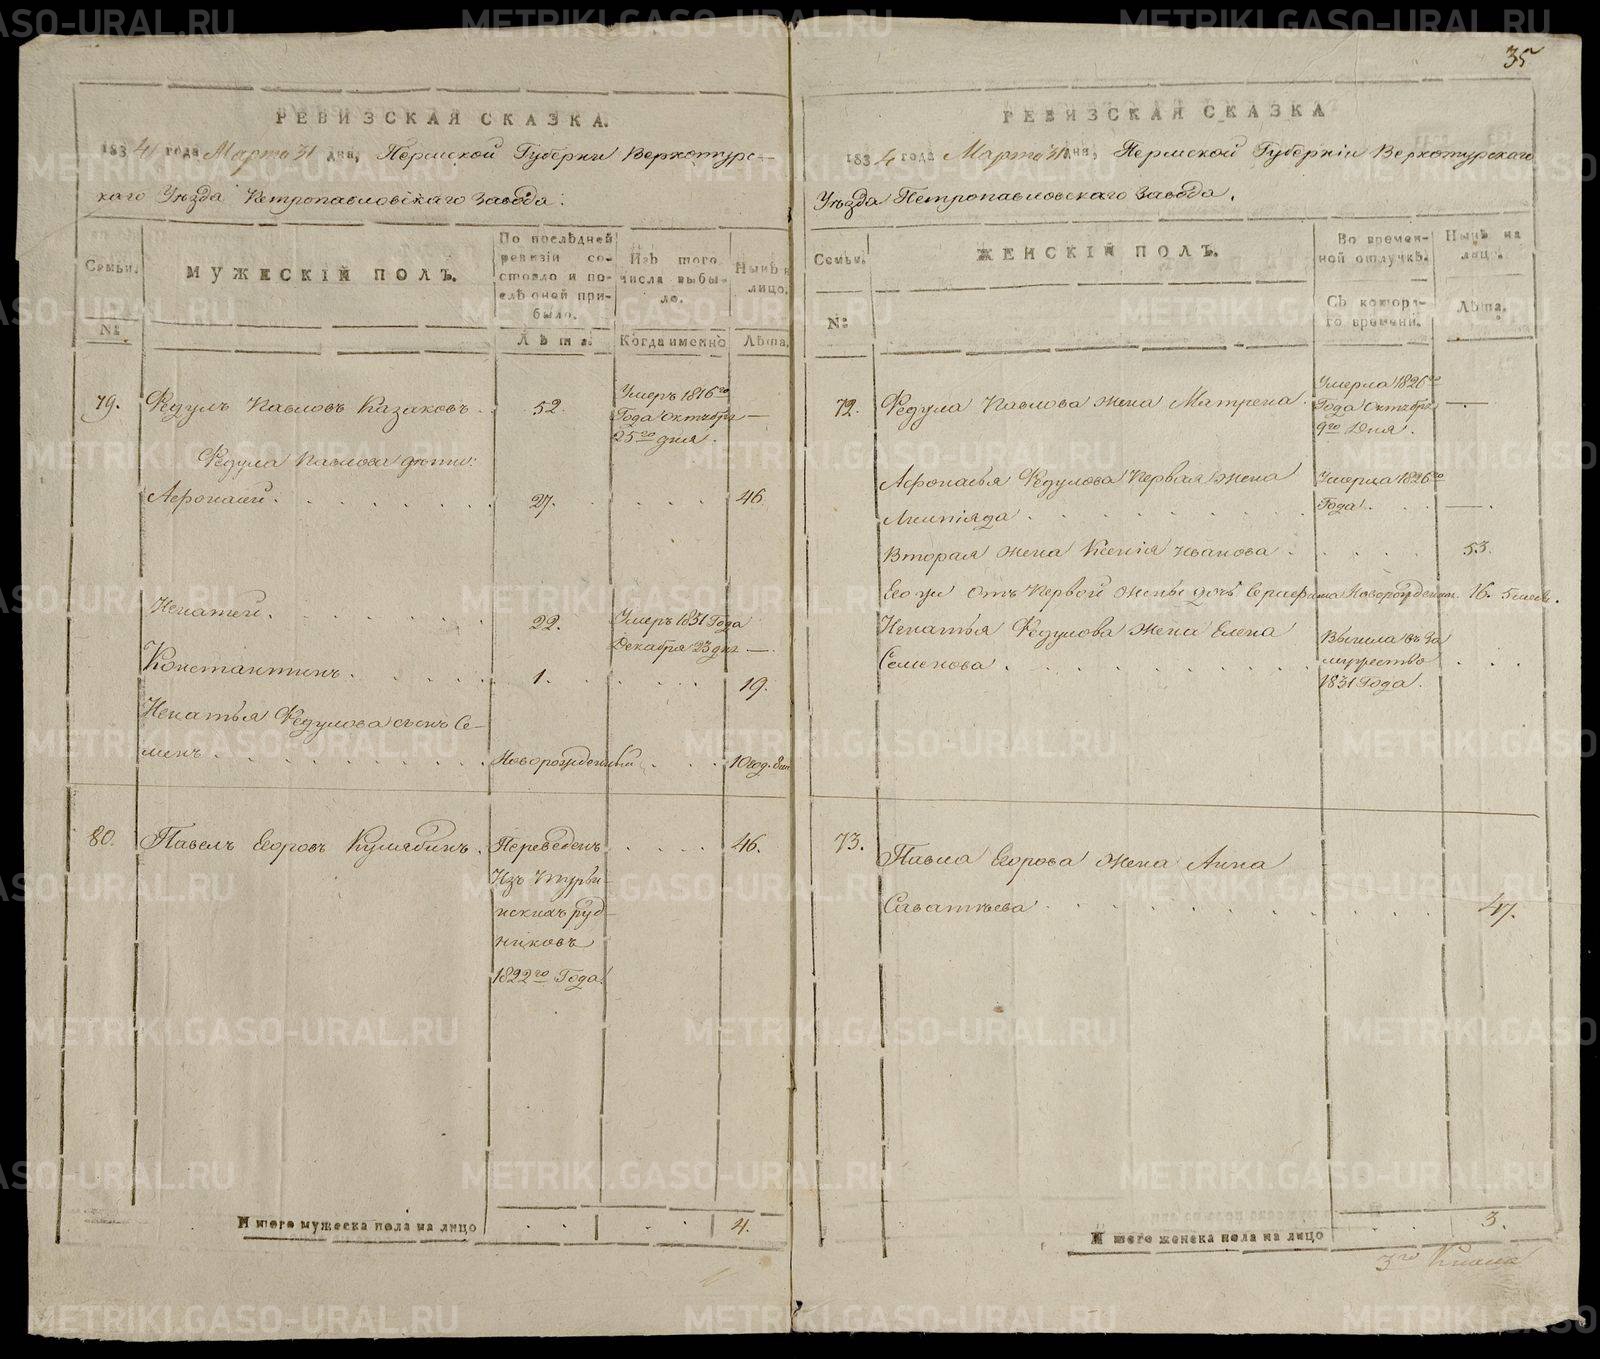 35
РЕВИЗСКАЯ СКАЗКА.
1834 года Марта 31 дня, Пермской Губернии Верхотурс-
каго Уѣзда Петропавловскаго Завода.
Семьи.
№
МУЖЕСКІЙ ПОЛЪ.
По послѣдней ревизіи состояло и послѣ оной прибыло.
Лѣта.
Изъ того числа выбыло.
Когда именно
Нынѣ на лицо.
Лѣта.
79. Федулъ Павловъ Казаковъ. 52. Умеръ 1816го
Года Октября —
25го дня.
Федула Павлова дѣти:
Афонасей. 27. 46.
Игнатей. 22. Умеръ 1831 Года
Декабря 23 дня —
Константинъ. 1. 19.
Игнатья Федулова сынъ Се-
менъ. Новорожденный 10 год.
80. Павелъ Егоровъ Кулябинъ. Переведенъ 46.
Изъ Турьи-
нскихъ руд-
никовъ
1822го Года.
Итого мужеска пола на лицо 4.
РЕВИЗСКАЯ СКАЗКА
1834 года Марта 31 дня, Пермской Губерніи Верхотурскаго
Уѣзда Петропавловскаго Завода.
Семьи.
№
ЖЕНСКІЙ ПОЛЪ.
Во временной отлучкѣ.
Съ котораго времени.
Нынѣ на лицо.
Лѣта.
72. Федула Павлова жена Матрена. Умерла 1826го
Года Октября —
9го Дня.
Афонасья Федулова Первая жена Умерла 1826го
Года. —
Вторая жена Ксенія Иванова. 53.
Его же отъ Первой жены дочь Серафима Новорожден. 16. 5 мес.
Игнатья Федулова жена Елена Вышла въ За
Семенова. мужество
1831 Года.
73. Павла Егорова жена Анна
Саватѣева 47.
Итого женска пола на лицо 3.
3го
METRIKI.GASO-URAL.RU